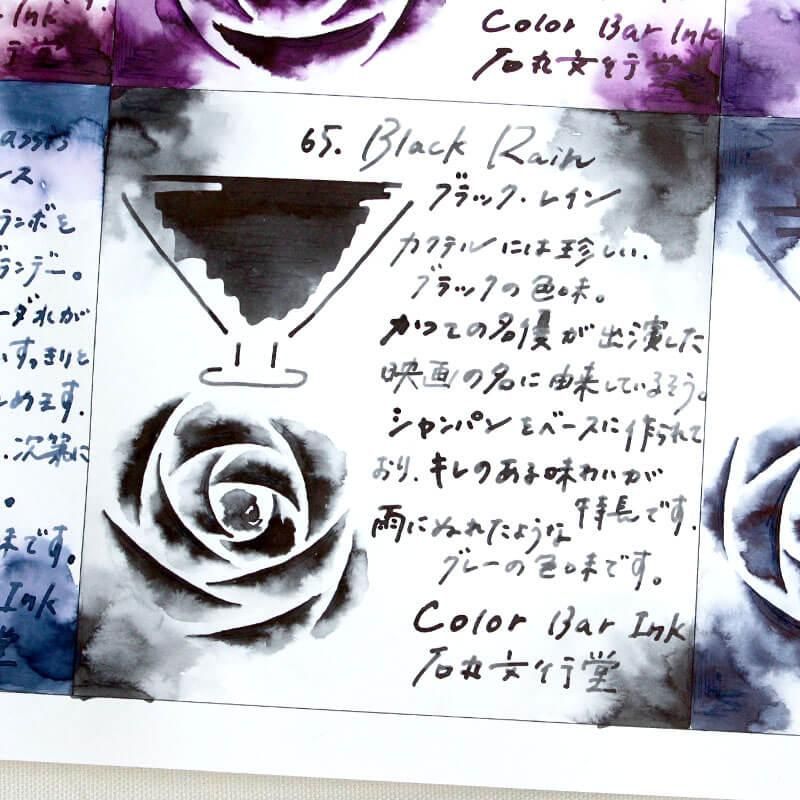 Ink
Color Bar Ink
石丸文行堂
65. Black Rain
ブラック・レイン
カクテルには珍しい、
ブラックの色味。
かつての名優が出演した
映画の名に由来しているそう。
シャンパンをベースに作られて
おり、キレのある味わいが
特長です。
雨にぬれたような
グレーの色味です。
Color Bar Ink
石丸文行堂
assis
ンス、
ランボを
ランデー。
ーダ水が
いすっきりと
しめます。
、次第に
。
味です。
Ink
堂